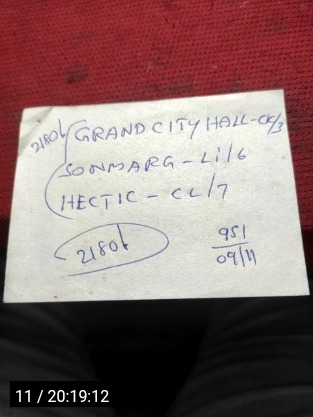 2180/
GRAND CITY HALL - CK/3
SONMARG - Li/6
HECTIC - CL/7
2180/
951
09/11
11 / 20:19:12